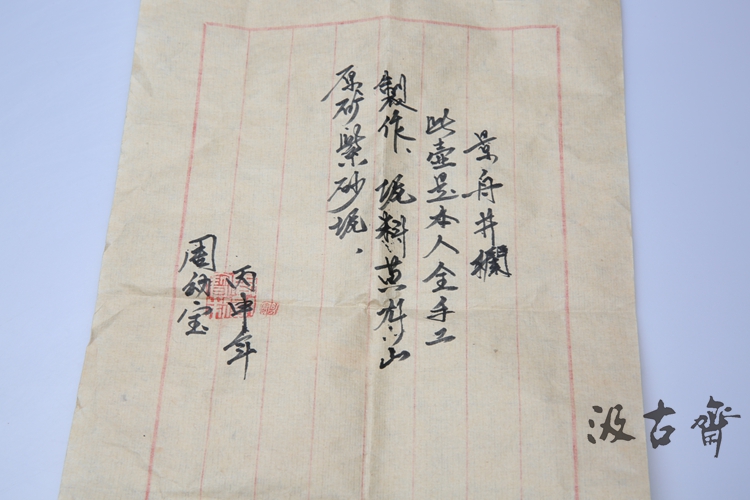 景舟井欄
此壺是本人全手工
製作、坭料黄龙山
原矿紫砂坭、
丙申年
周幼宝
汲古齋